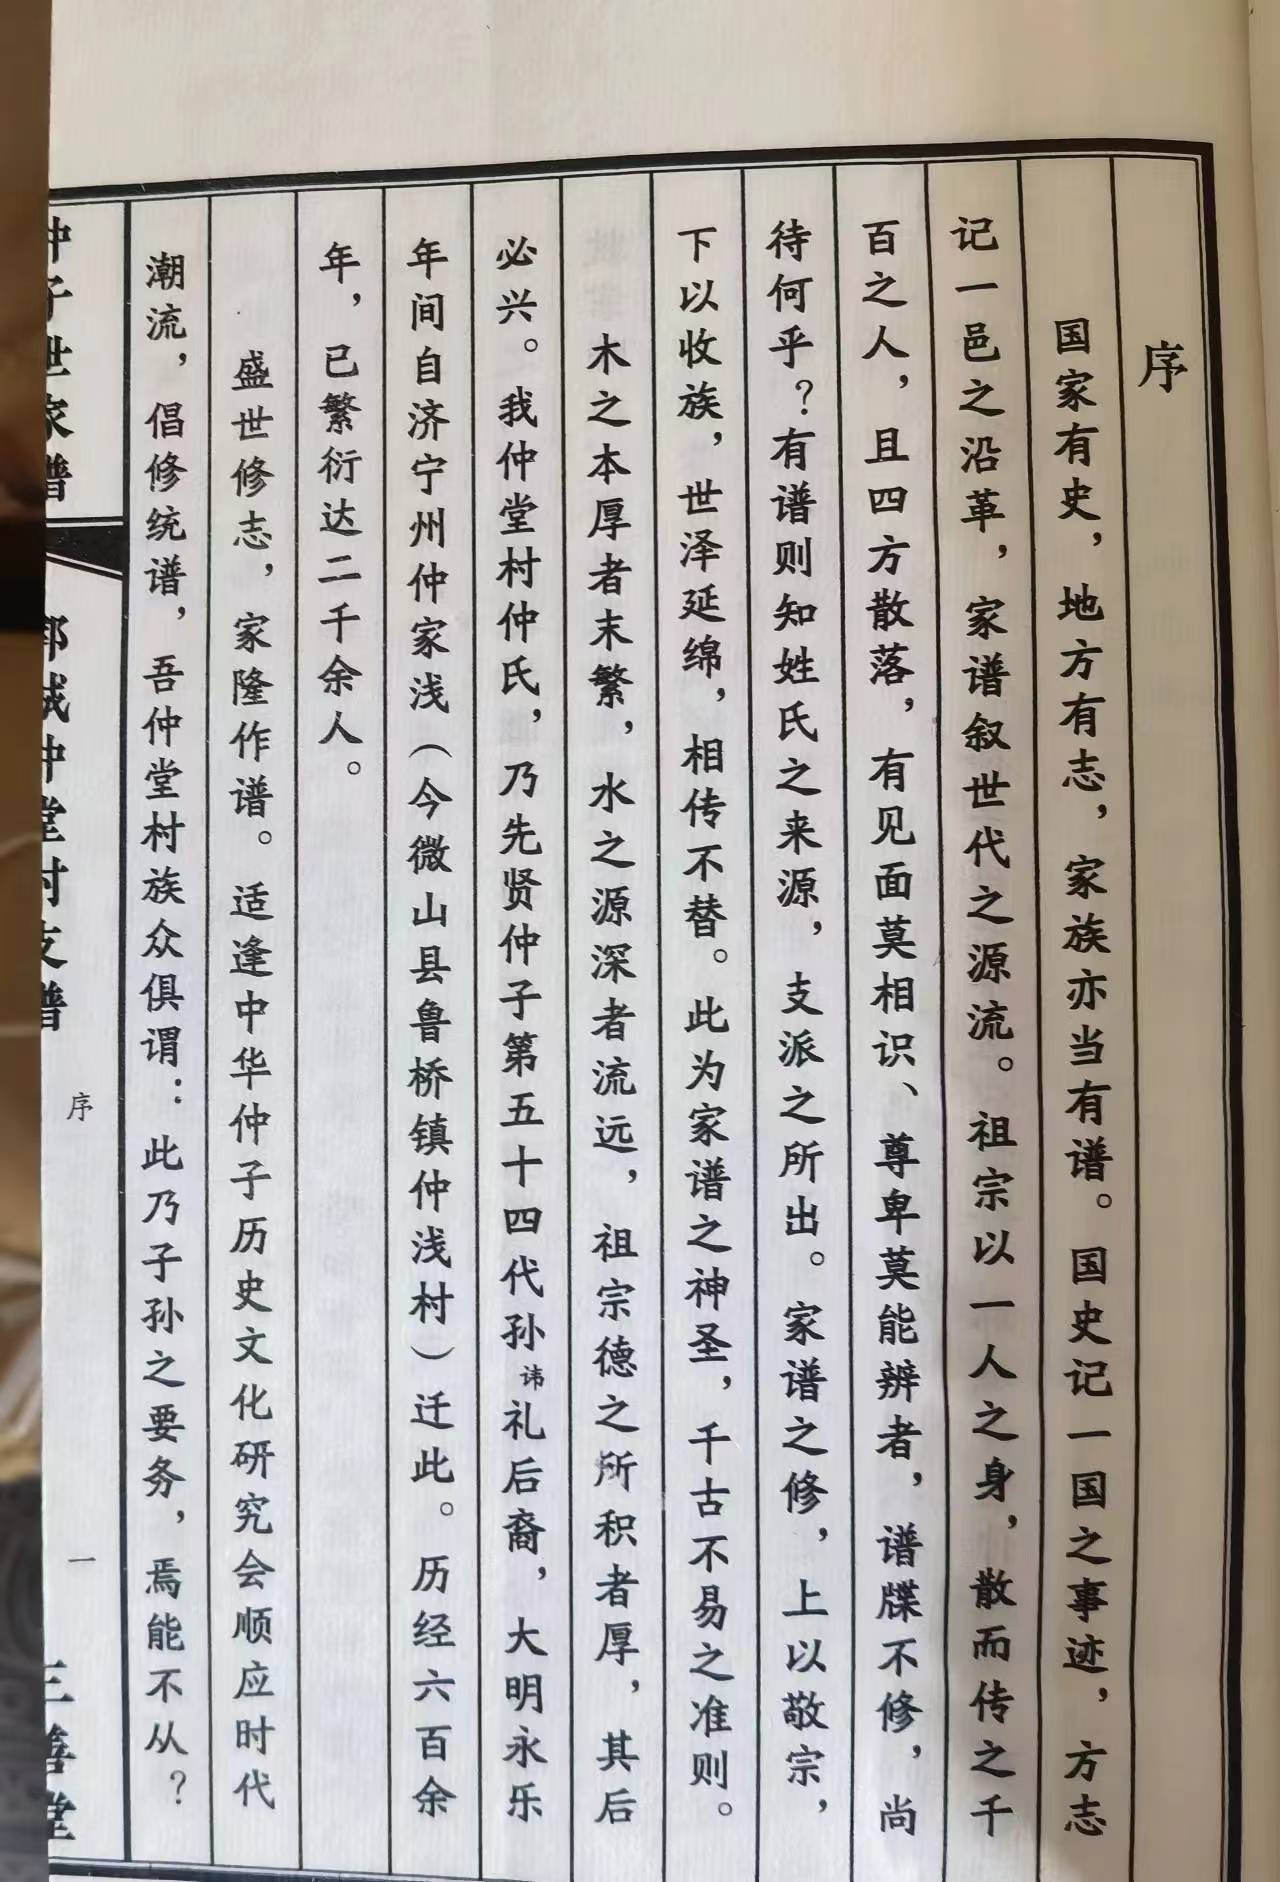 序
国家有史，地方有志，家族亦当有谱。国史记一国之事迹，方志
记一邑之沿革，家谱叙世代之源流。祖宗以一人之身，散而传之千
百之人，且四方散落，有见面莫相识、尊卑莫能辨者，谱牒不修，尚
待何乎？有谱则知姓氏之来源，支派之所出。家谱之修，上以敬宗，
下以收族，世泽延绵，相传不替。此为家谱之神圣，千古不易之准则。
木之本厚者末繁，水之源深者流远，祖宗德之所积者厚，其后
必兴。我仲堂村仲氏，乃先贤仲子第五十四代孙讳礼后裔，大明永乐
年间自济宁州仲家浅（今微山县鲁桥镇仲浅村）迁此。历经六百余
年，已繁衍达二千余人。
盛世修志，家隆作谱。适逢中华仲子历史文化研究会顺应时代
潮流，倡修统谱，吾仲堂村族众俱谓：此乃子孙之要务，焉能不从？
仲子世家谱
郓城仲堂村支谱
序
一
三善堂